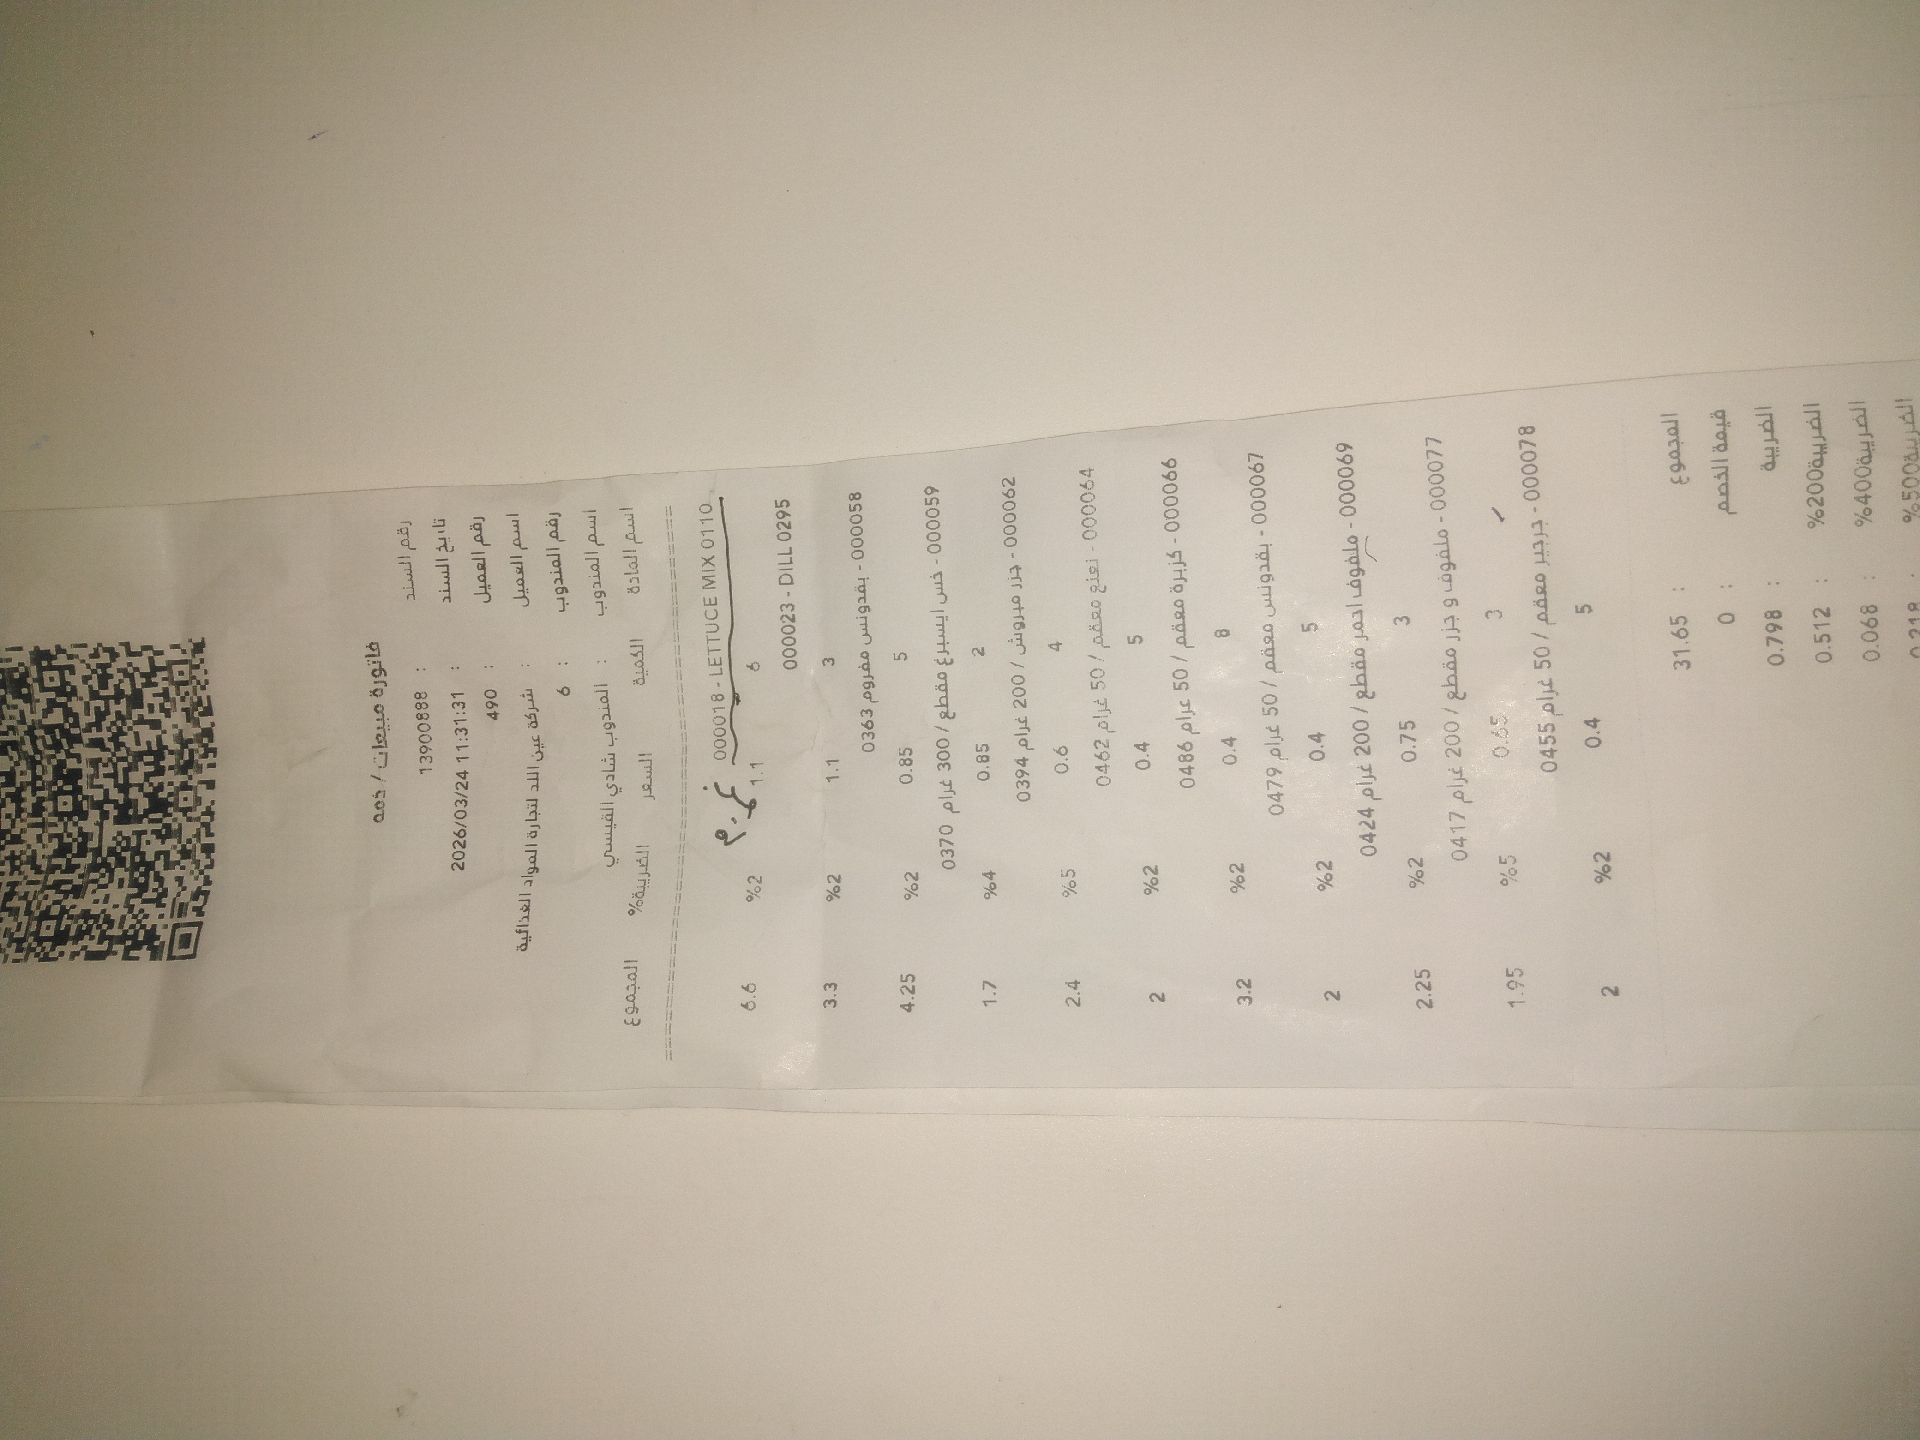 فاتورة مبيعات / ذمه
رقم السند : 13900888
تاريخ السند : 2026/03/24 11:31:31
رقم العميل : 490
اسم العميل : شركة عين اللد لتجارة المواد الغذائية
رقم المندوب : 6
اسم المندوب : المندوب شادي القيسي
اسم المادة الكمية السعر الضريبة% المجموع
000018 - LETTUCE MIX 0110
6 1.1 %2 6.6
000023 - DILL 0295
3 1.1 %2 3.3
000058 - بقدونس مفروم 0363
5 0.85 %2 4.25
000059 - خس ايسبرغ مقطع / 300 غرام 0370
2 0.85 %4 1.7
000062 - جزر مبروش / 200 غرام 0394
4 0.6 %5 2.4
000064 - نعنع معقم / 50 غرام 0462
5 0.4 %2 2
000066 - كزبرة معقم / 50 غرام 0486
8 0.4 %2 3.2
000067 - بقدونس معقم / 50 غرام 0479
5 0.4 %2 2
000069 - ملفوف احمر مقطع / 200 غرام 0424
3 0.75 %2 2.25
000077 - ملفوف و جزر مقطع / 200 غرام 0417
3 0.65 %5 1.95
000078 - جرجير معقم / 50 غرام 0455
5 0.4 %2 2
المجموع : 31.65
قيمة الخصم : 0
الضريبة : 0.798
الضريبة200% : 0.512
الضريبة400% : 0.068
الضريبة500% : 0.218